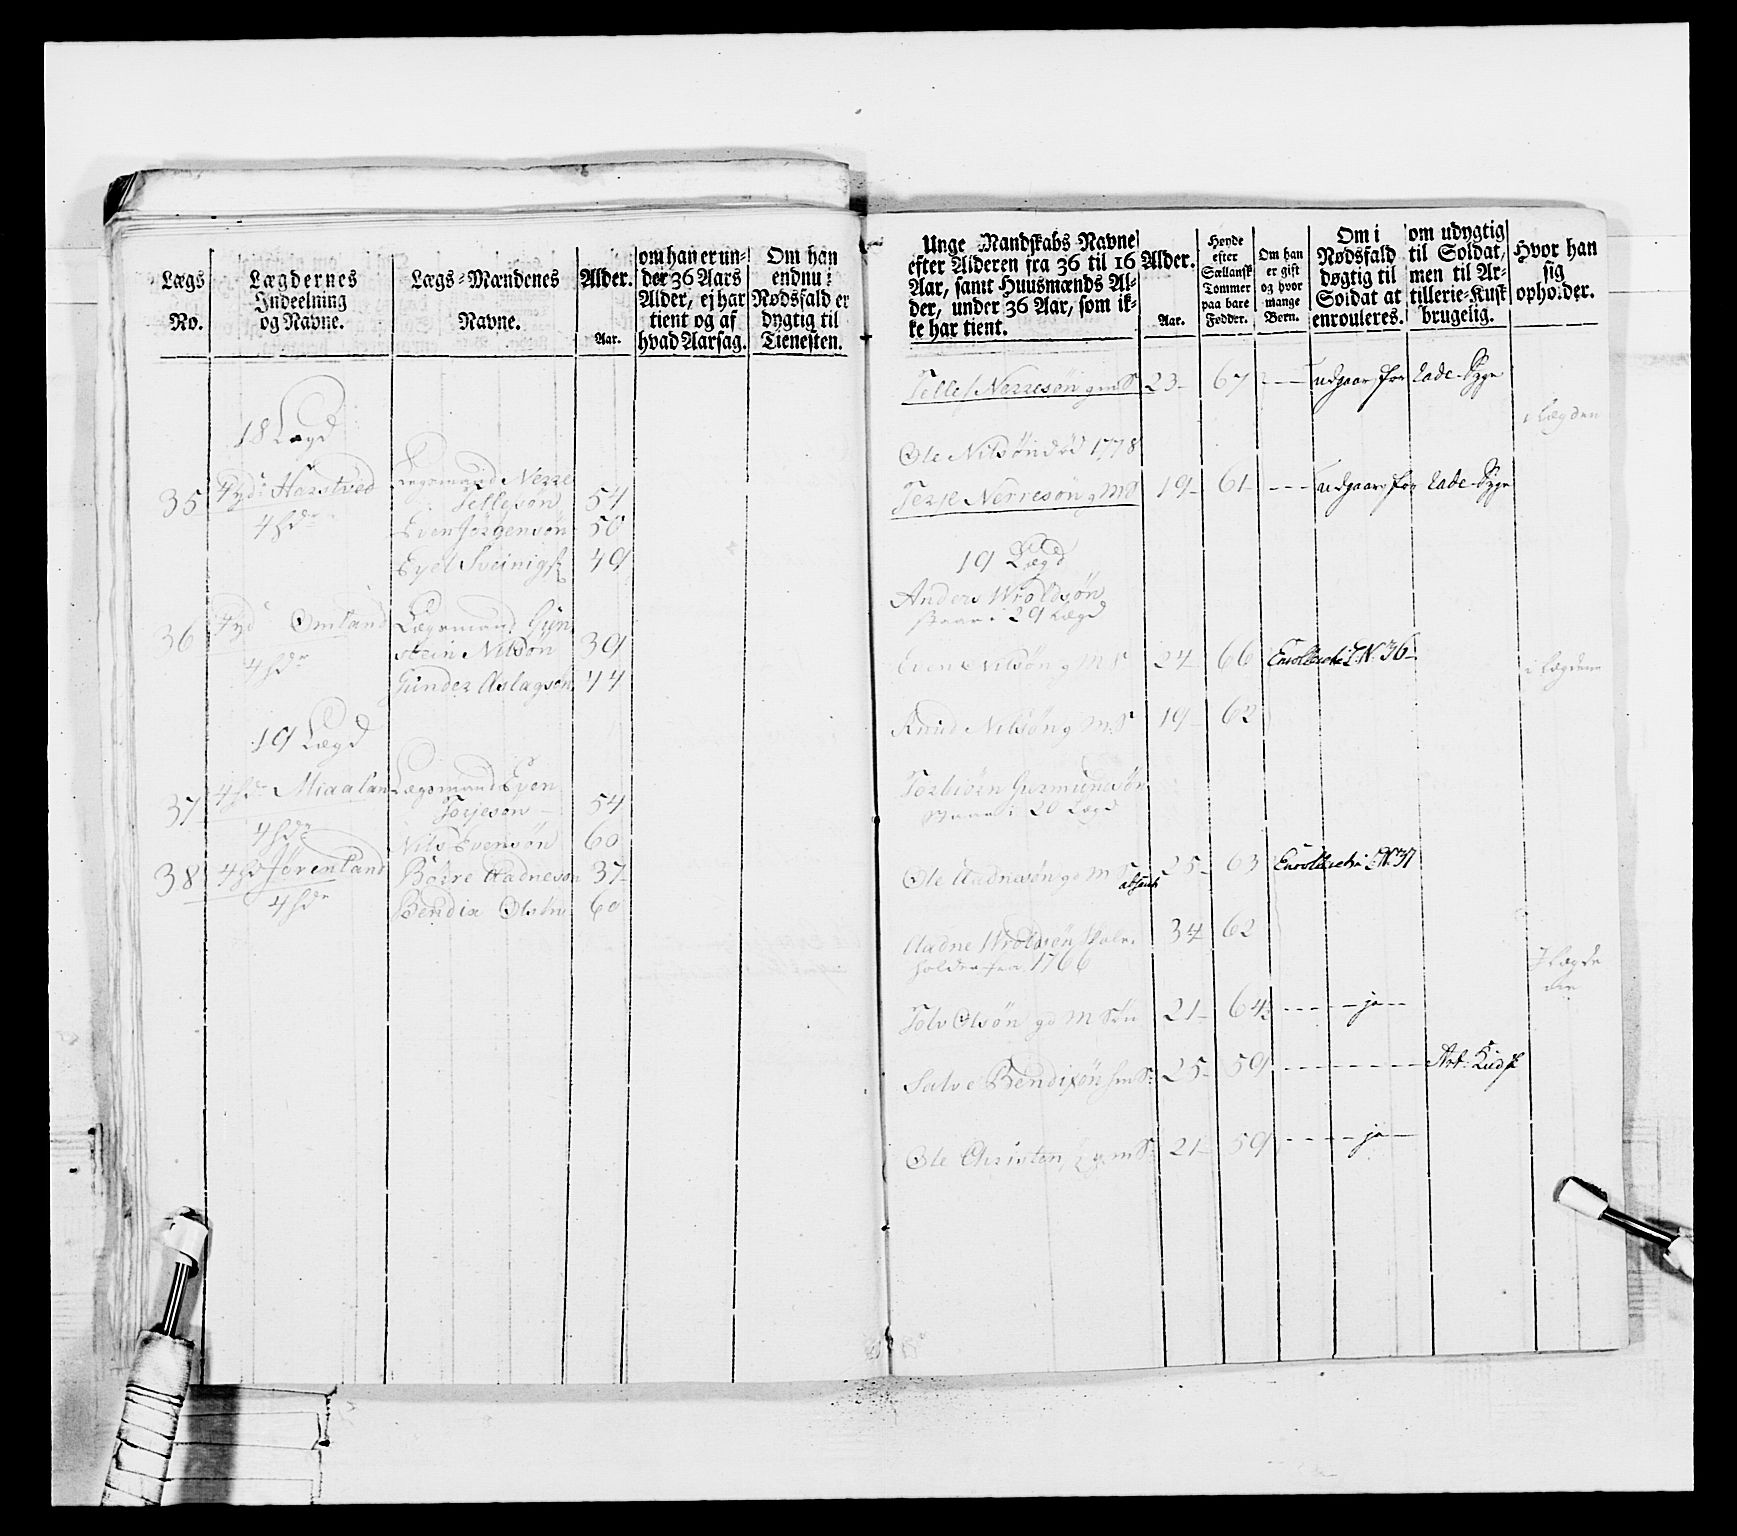 Lægs
No.
Lægdernes
Indeelning
og Navne.
Lægs-Mændenes
Navne.
Alder.
Aar.
om han er un-
der 36 Aars
Alder, ej har
tient og af
hvad Aarsag.
Om han
endnu i
Nødsfald er
dygtig til
Tienesten.
18 Lægd
35 Harstved
Lægsmand Nerre
Tellesøn 54
Even Jørgensøn 50
49
36 Omland
Lægsmand Gun
stein Nilson 39
Gunder Aslagsøn 44
19 Lægd
37 Miaaland
Lægsmand Even
Torjeson 54
Nils Evensøn 60
38 Jørenland Aadneson 37
Bendix Olsøn 60
Unge Mandskabs Navne
efter Alderen fra 36 til 16
Aar, samt Huusmænds Al-
der, under 36 Aar, som ik-
ke har tient.
Alder.
Aar.
Høyde
efter
Sællansk
Tommer
paa bare
Fødder.
Om han
er gift
og hvor
mange
Børn.
Om i
Nødsfald
døgtig til
Soldat at
enrouleres.
om udygtig
til Soldat,
men til Ar-
tillerie-Kusk
brugelig.
Hvor han
sig
opholder.
Tellef Nerresøn g m S 23 67 udgaar for Lade Syge
i Lægden
Ole Nilsøn død 1778
Terje Nerresøn g M S 19 61 udgaar for Lade Syge
19 Lægd
Anders Wroldsøn
staar i 29 Lægd
Even Nilsøn g M S 24 66 N. 36
i Lægden
Knud Nilsøn g M S 19 62
Torbiørn Gunmundsøn
staar i 20 Lægd
Ole Aadnesøn g M S absent 25 63 N. 37
Aadne Wroldsøn 34 62
1766
I Lægde
den
Tolv Olsøn M Søn 21 64 ja
Salve Bendixøn h m S: 25 59 Art: Kudsk
Ole Christen g m S: 21 59 ja